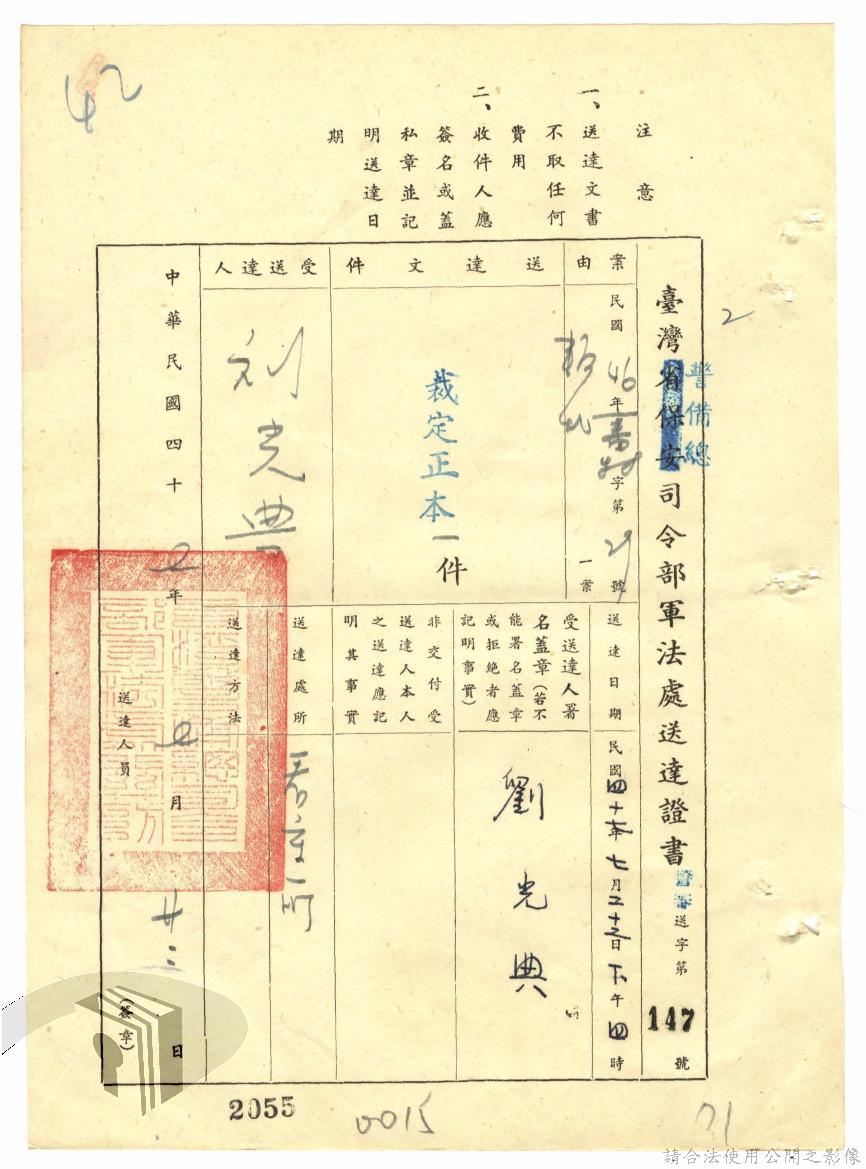 42
注意
一、送達文書
不取任何
費用
二、收件人應
簽名或蓋
私章並記
明送達日
期
2
臺灣省保安司令部軍法處送達證書
警備總
送字第
147
號
案由
民國46年 字第29號
叛亂
一案
送達文件
裁定正本一件
受送達人
劉光典
送達日期
民國四十七年七月二十三日下午四時
受送達人署
名蓋章(若不
能署名蓋章
或拒絕者應
記明事實)
劉光典
非交付受
送達人本人
之送達應記
明其事實
送達處所
看守所
送達方法
中華民國四十七年七月廿三日
送達人員
(簽章)
2055
0015
71
請合法使用公開之影像